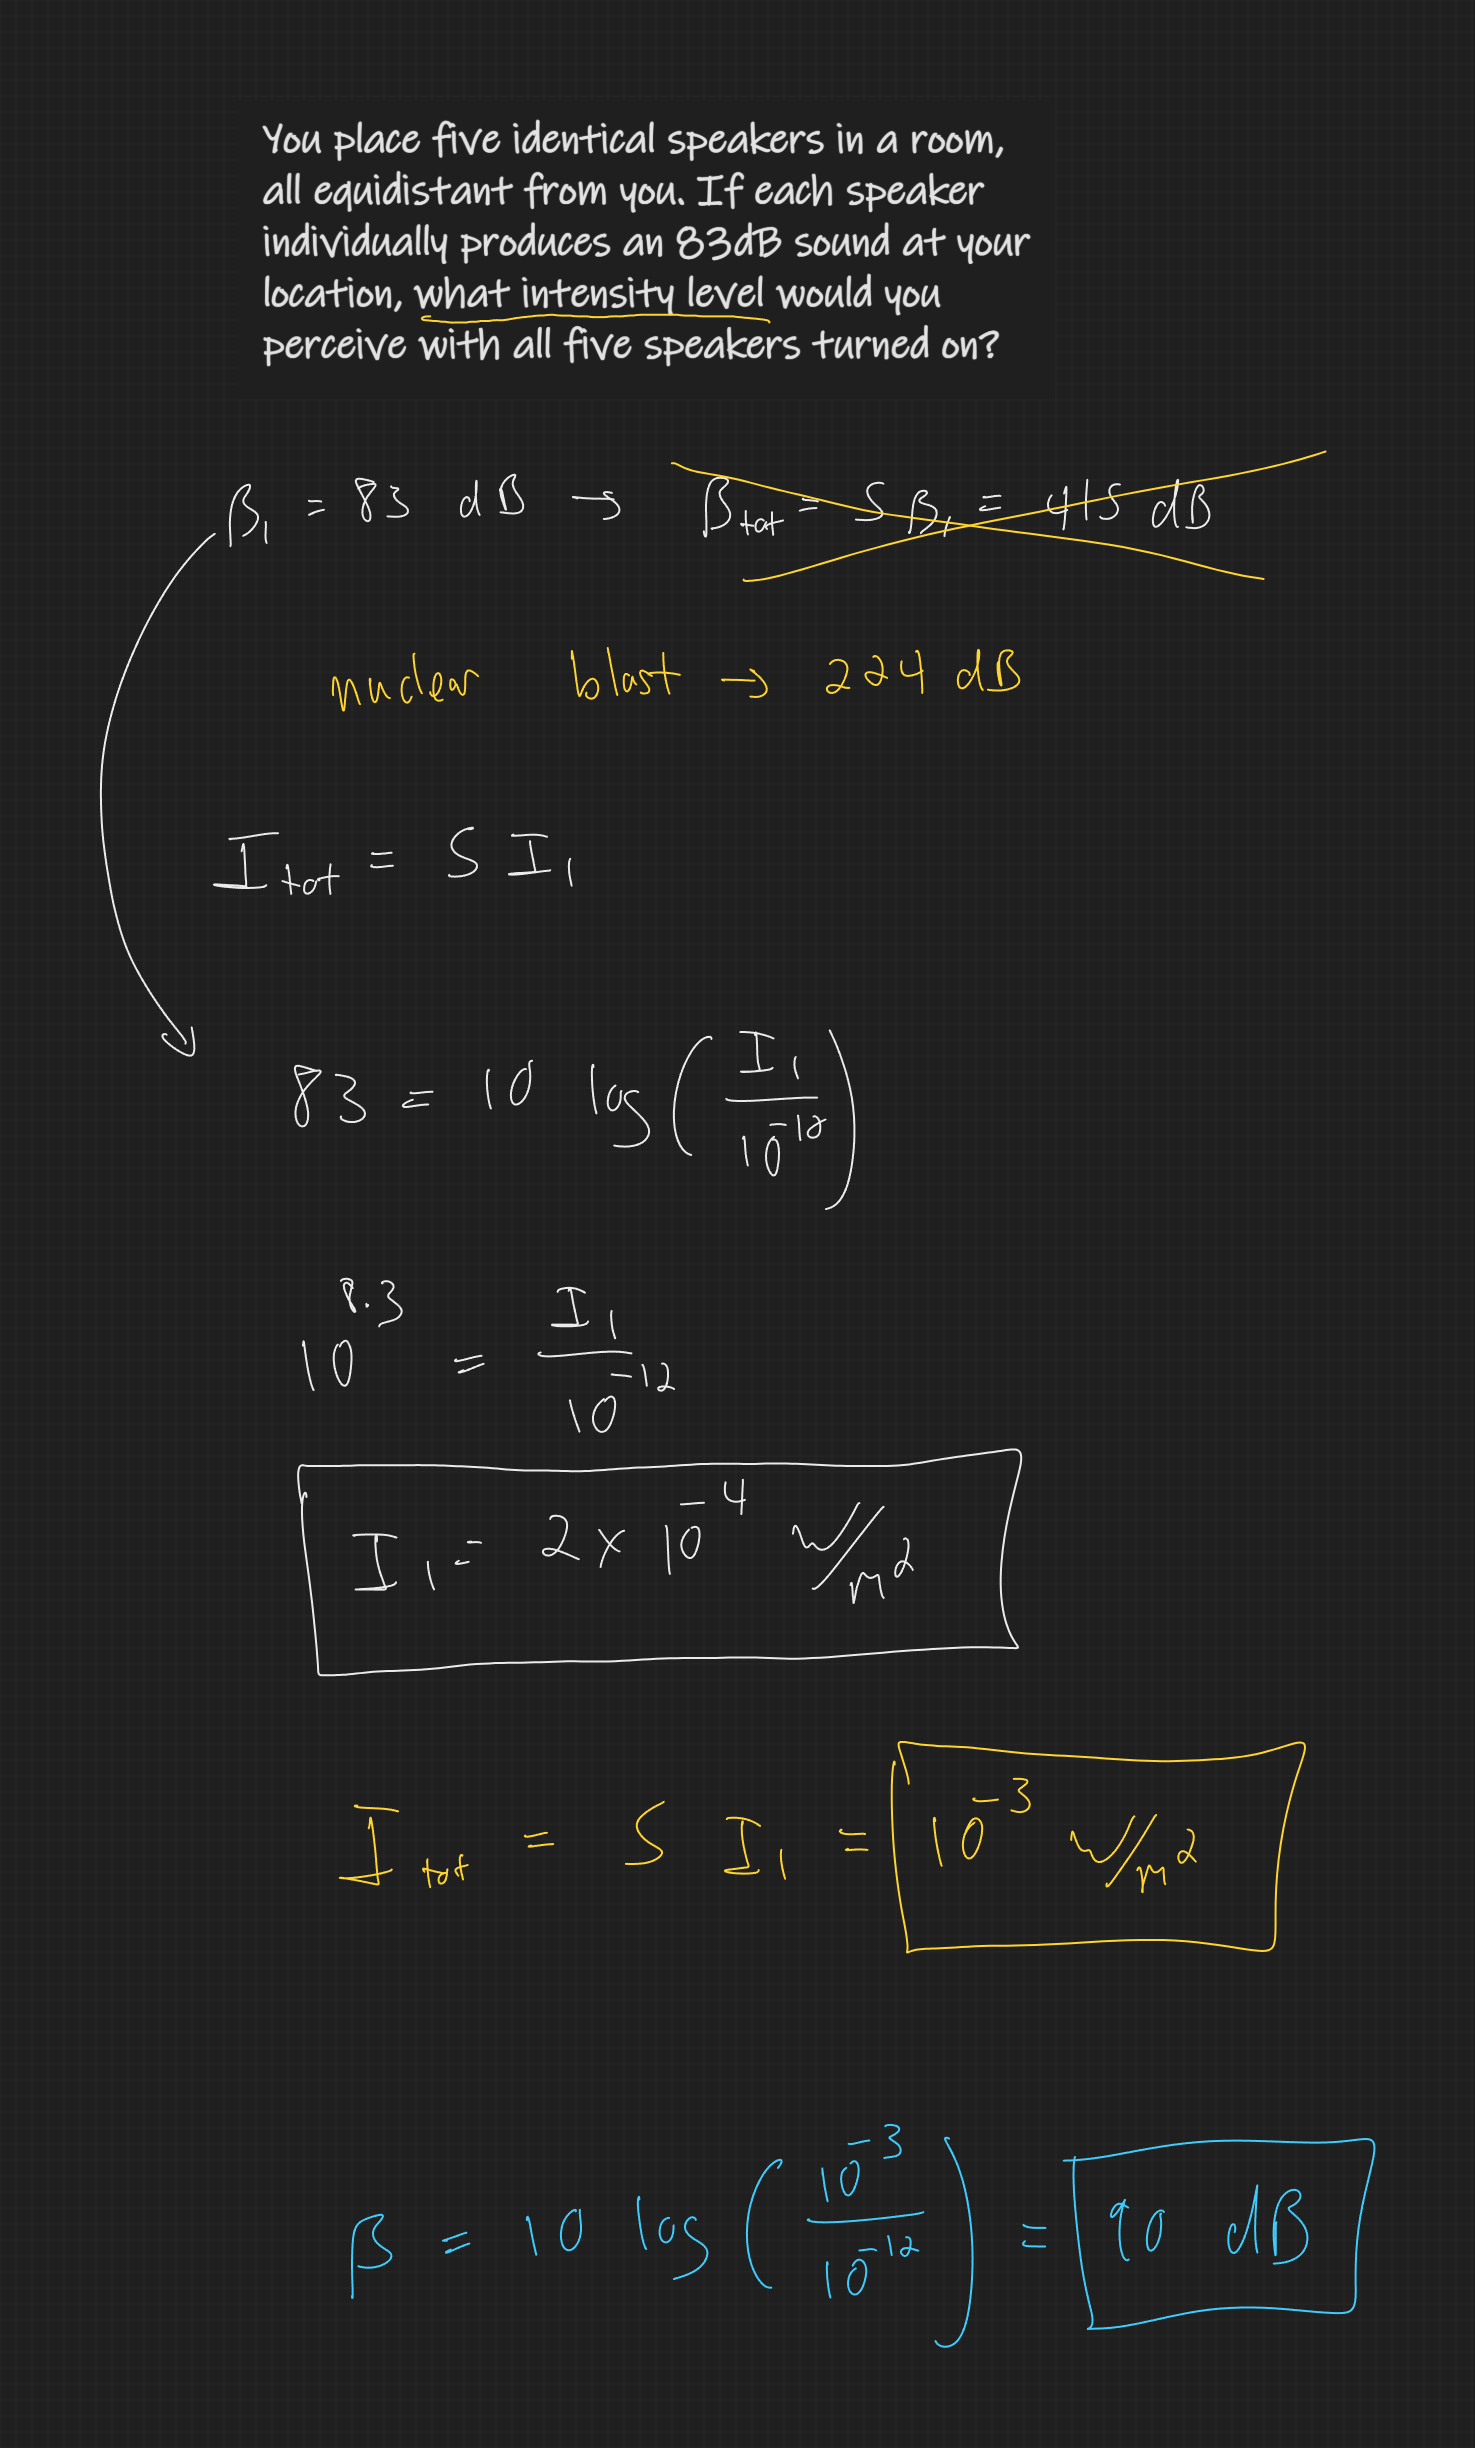 You place five identical speakers in a room,
all equidistant from you. If each speaker
individually produces an 83dB sound at your
location, what intensity level would you
perceive with all five speakers turned on?
β₁ = 83 dB → β_tot = 5 β₁ = 415 dB
nuclear blast → 224 dB
I_tot = 5 I₁
83 = 10 log (I₁ / 10⁻¹²)
10^8.3 = I₁ / 10⁻¹²
I₁ = 2 × 10⁻⁴ W/m²
I_tot = 5 I₁ = 10⁻³ W/m²
β = 10 log (10⁻³ / 10⁻¹²) = 90 dB